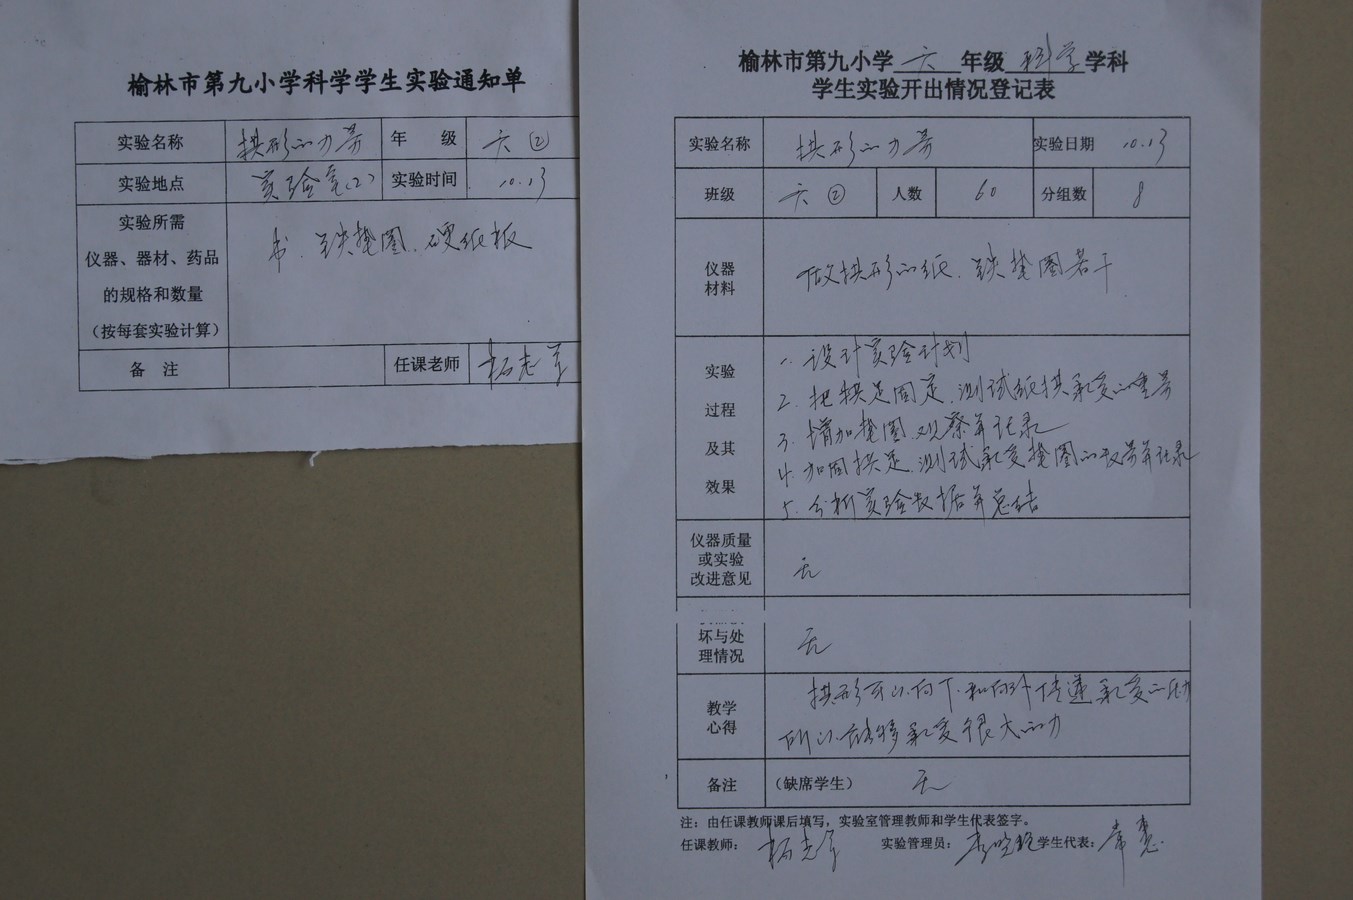 榆林市第九小学科学学生实验通知单
实验名称 拱形的力量 年 级 六②
实验地点 实验室(2) 实验时间 10.13
实验所需
仪器、器材、药品
的规格和数量
（按每套实验计算）
书、铁垫圈、硬纸板
备 注 任课老师 杨志军
榆林市第九小学 六 年级 科学 学科
学生实验开出情况登记表
实验名称 拱形的力量 实验日期 10.13
班级 六② 人数 60 分组数 8
仪器
材料
做拱形的纸、铁垫圈若干
实验
过程
及其
效果
1. 设计实验计划
2. 把拱足固定、测试纸拱承受的重量
3. 增加垫圈、观察并记录
4. 加固拱足、测试承受垫圈的数量并记录
5. 分析实验数据并总结
仪器质量
或实验
改进意见
无
坏与处
理情况
无
教学
心得
拱形可以向下和向外传递承受的压力
所以能够承受很大的力
备注 （缺席学生） 无
注：由任课教师课后填写，实验室管理教师和学生代表签字。
任课教师： 杨志军 实验管理员： 学生代表：